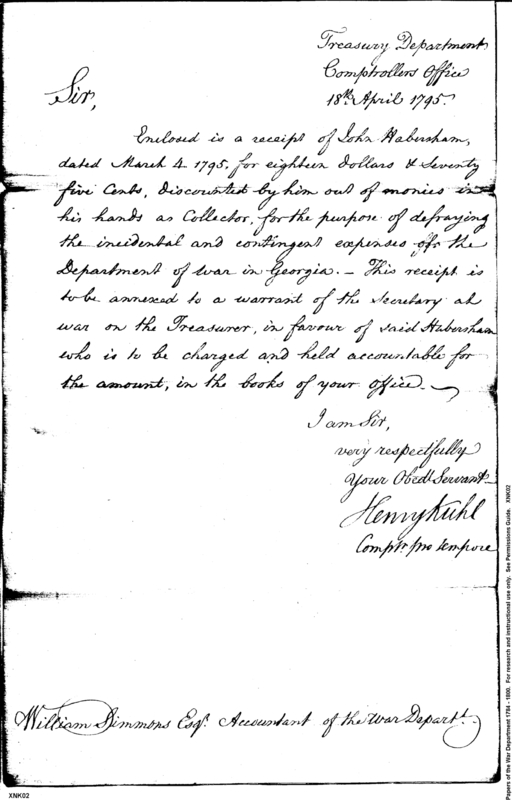 Treasury Department
Comptrollers Office
18th April 1795.
Sir,
Enclosed is a receipt of John Habersham,
dated March 4. 1795. for eighteen Dollars & Seventy
five Cents, discounted by him out of monies in
his hands as Collector, for the purpose of defraying
the incidental and contingent expenses of the
Department of war in Georgia. - This receipt is
to be annexed to a warrant of the Secretary at
war on the Treasurer, in favour of said Habersham
who is to be charged and held accountable for
the amount, in the books of your office.
I am Sir,
very respectfully
Your Obedt. Servant
Henry Kuhl
Comptr. pro tempore
William Simmons Esqr. Accountant of the War Departt.
XNK02
Papers of the War Department 1784 - 1800. For research and instructional use only. See Permissions Guide. XNK02